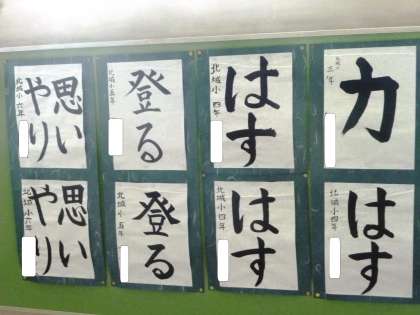 力
三年
はす
北城小 四年
登る
北城小五年
思い
やり
北城小六年
はす
北城小四年
はす
北城小四年
登る
北城小五年
思い
やり
北城小六年